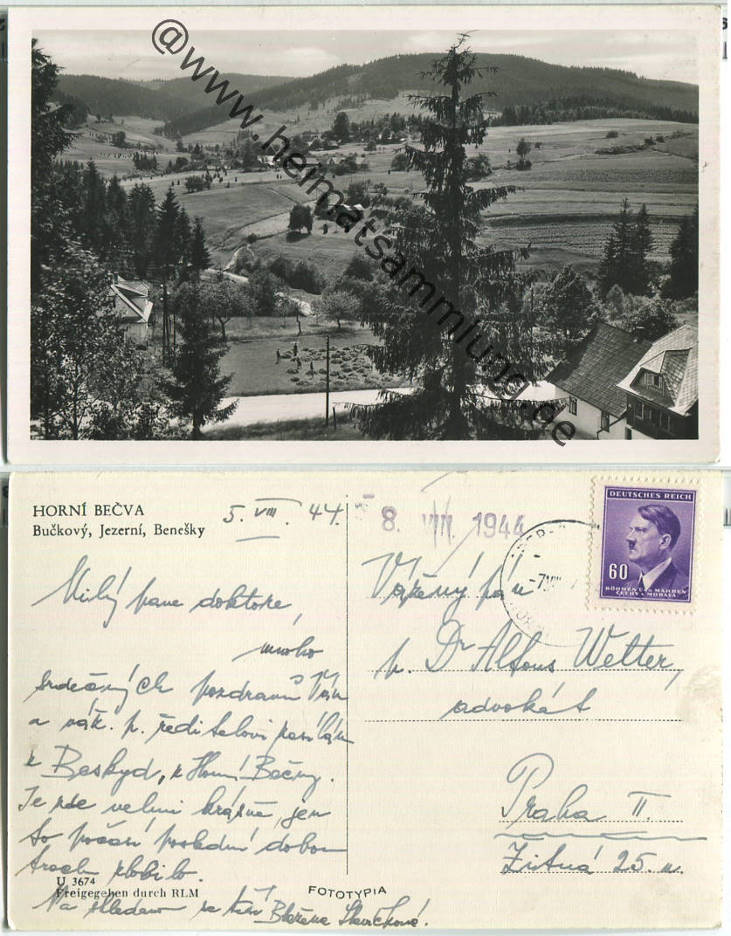 @www.heimatsammlung.de
HORNÍ BEČVA
Bučkový, Jezerní, Benešky
5. VIII. 44.
8. VIII. 1944
DEUTSCHES REICH
60
BÖHMEN U. MÄHREN
ČECHY A MORAVA
Milý pane doktore,
mnoho
srdečných pozdravů Vám
a vák. p. řediteli posílám
z Beskyd, z Horní Bečvy.
Je zde velmi krásně, jen
to počasí poslední dobou
troch zlobilo.
Na shledanou se těší Blažena
U 3674
Freigegeben durch RLM
FOTOTYPIA
Vážený pán
p. Dr Alfons Welter,
advokát
Praha II.
Žitná 25.